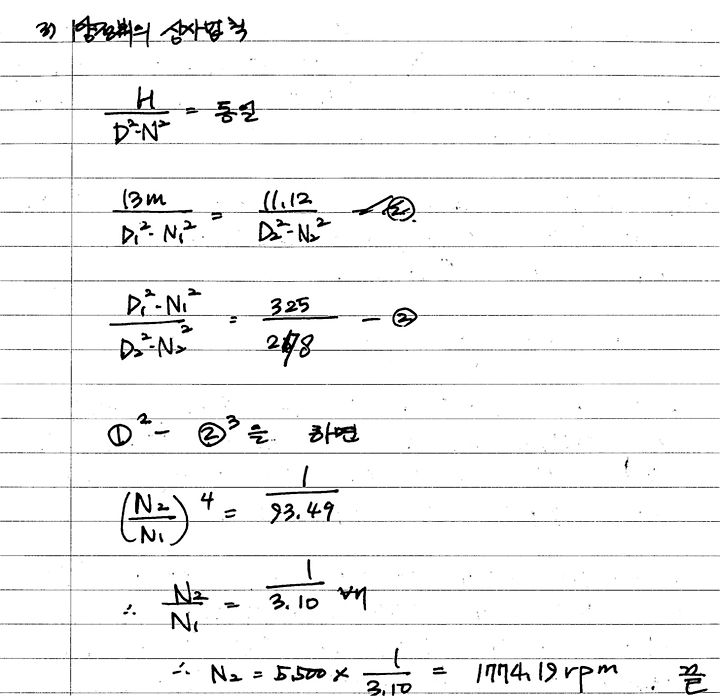 3) 양정의 상사법칙
H / D²·N² = 동일
13m / D₁²·N₁² = 11.12 / D₂²·N₂² - ②
D₁²·N₁² / D₂²·N₂² = 325 / 278 - ②
①² - ②³ 을 하면
(N₂ / N₁)⁴ = 1 / 93.49
∴ N₂ / N₁ = 1 / 3.10
∴ N₂ = 5,500 × 1 / 3.10 = 1774.19 rpm